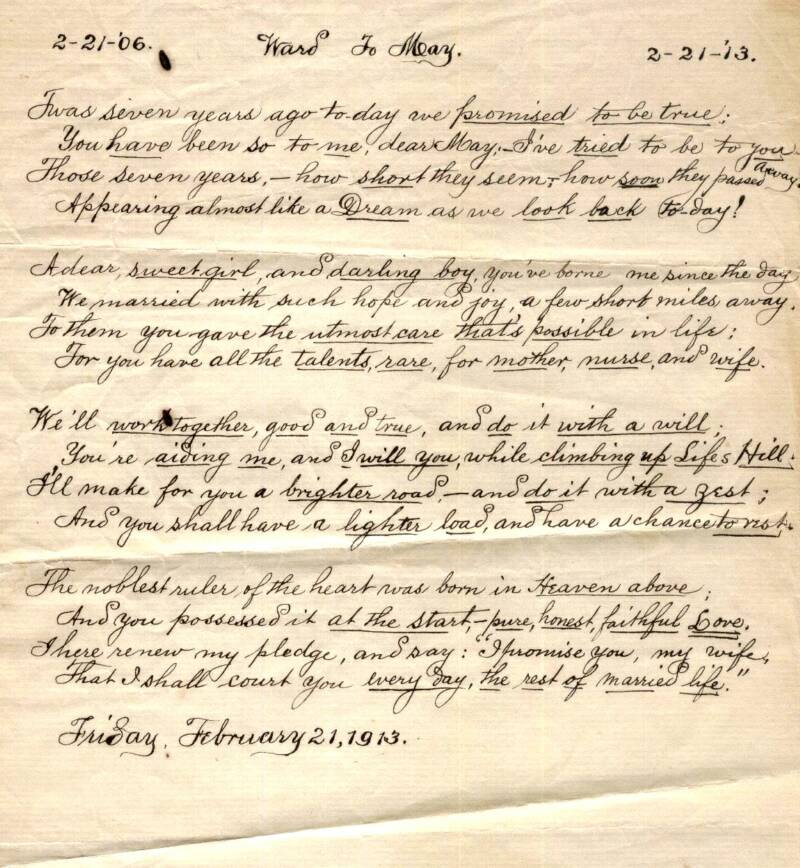 2-21-'06. Ward To May. 2-21-'13.
'Twas seven years ago to-day we promised to be true;
You have been so to me, dear May,—I've tried to be to you
Those seven years,—how short they seem,—how soon they passed away.
Appearing almost like a Dream as we look back to-day!
A dear, sweet girl, and darling boy, you've borne me since the day
We married with such hope and joy, a few short miles away.
To them you gave the utmost care that's possible in life;
For you have all the talents, rare, for mother, nurse, and wife.
We'll work together, good and true, and do it with a will;
You're aiding me, and I will you, while climbing up Life's Hill;
I'll make for you a brighter road,—and do it with a zest;
And you shall have a lighter load, and have a chance to rest.
The noblest ruler of the heart was born in Heaven above;
And you possessed it at the start,—pure, honest, faithful Love.
I here renew my pledge, and say: "I promise you, my wife,
That I shall court you every day, the rest of married life."
Friday, February 21, 1913.